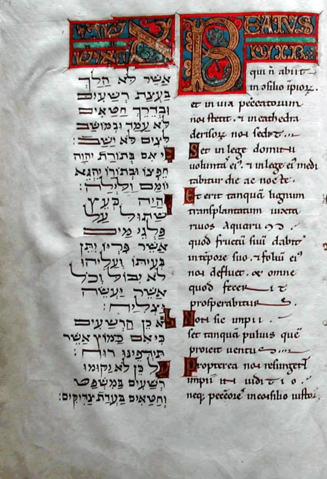 אשר לא הלך
בעצת רשעים
ובדרך חטאים
לא עמד ובמושב
לצים לא ישב:
כי אם בתורת יהוה
חפצו ובתורתו יהגה
יומם ולילה:
והיה כעץ
שתול על
פלגי מים
אשר פריו יתן
בעיתו ועליהו
לא יבול וכל
אשר יעשה
יצליח:
לא כן הרשעים
כי אם כמוץ אשר
תידפינו רוח:
על כן לא יקומו
רשעים במשפט
וחטאים בעדת צדיקים:
BEATUS
VIR
qui ñ abiit
in ↄsilio ipiorꝝ
et in via peccatorum
nō stetit. ⁊ in cathedra
derisorꝝ nō sedit
Set in lege domini
volunta ei⁹. ⁊ in lege ei⁹ medi
tabitur die ac nocte
Et erit tanquā lignum
transplantatum iuxta
rivos aquarum
quod fructū suū dabit
in tēpore suo. ⁊ foliū ei⁹
nō defluet. et omne
quod fecerit
prosperabitur
Non sic impii.
set tanquā pulvis quē
proicit ventus
Propterea nō resurgent
impii in iudicio
neqꝫ peccōres in ↄsilio iustoꝝ